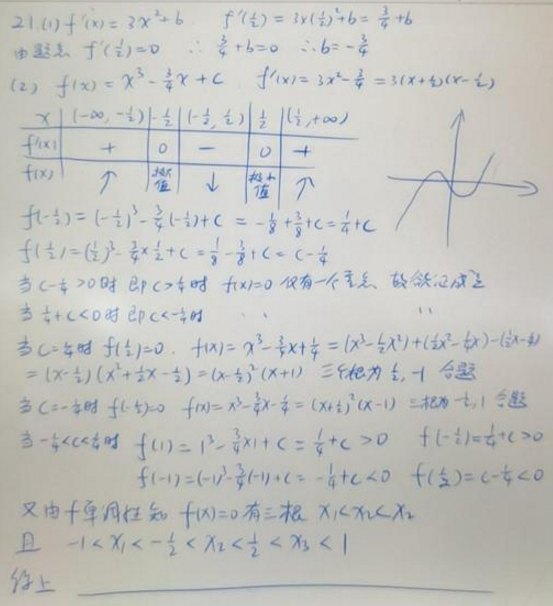 21.(1) f'(x) = 3x²+b. f'(½) = 3×(½)²+b = ¾+b
由题意 f'(½)=0 ∴ ¾+b=0 ∴b=-¾
(2) f(x) = x³-¾x+c f'(x) = 3x²-¾ = 3(x+½)(x-½)
x (-∞,-½) -½ (-½,½) ½ (½,+∞)
f'(x) + 0 - 0 +
f(x) ↑ 极大值 ↓ 极小值 ↑
f(-½) = (-½)³-¾(-½)+c = -⅛+⅜+c = ¼+c
f(½) = (½)³-¾×½+c = ⅛-⅜+c = c-¼
当 c-¼>0时 即 c>¼时 f(x)=0 仅有一个零点 故欲证成立
当 ¼+c<0时 即 c<-¼时 ‥ ‥
当 c=¼时 f(½)=0. f(x)= x³-¾x+¼ = (x³-½x²)+(½x²-¼x)-(½x-¼)
= (x-½)(x²+½x-½) = (x-½)²(x+1) 三个根为 ½,-1 合题
当 c=-¼时 f(-½)=0 f(x)= x³-¾x-¼ = (x+½)²(x-1) 三根为 -½,1 合题
当 -¼<c<¼时 f(1) = 1³-¾×1+c = ¼+c >0 f(-½)=¼+c>0
f(-1)=(-1)³-¾(-1)+c = -¼+c <0 f(½)= c-¼<0
又由f单调性知 f(x)=0有三根 x₁<x₂<x₂
且 -1<x₁<-½<x₂<½<x₃<1
综上